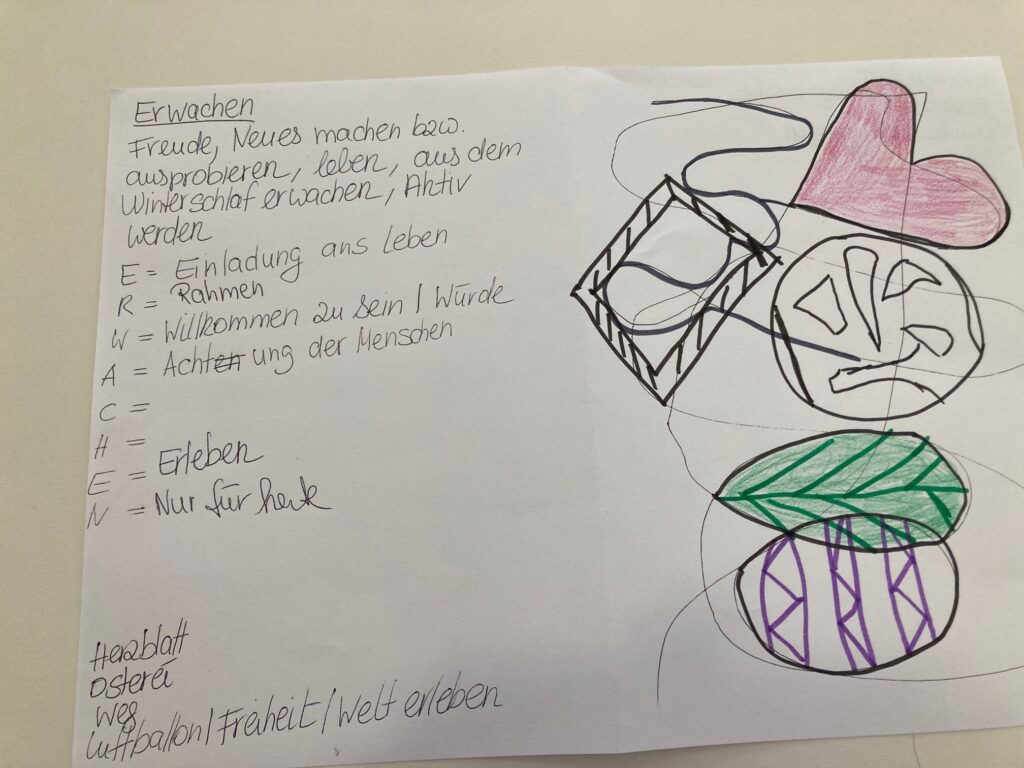 Erwachen
Freude, Neues machen bzw.
ausprobieren, leben, aus dem
Winterschlaf erwachen, Aktiv
werden
E = Einladung ans leben
R = Rahmen
W = Willkommen zu sein / Würde
A = Achten ung der Menschen
C =
H =
E = Erleben
N = Nur für heute
Herzblatt
Osterei
Weg
Luftballon / Freiheit / Welt erleben